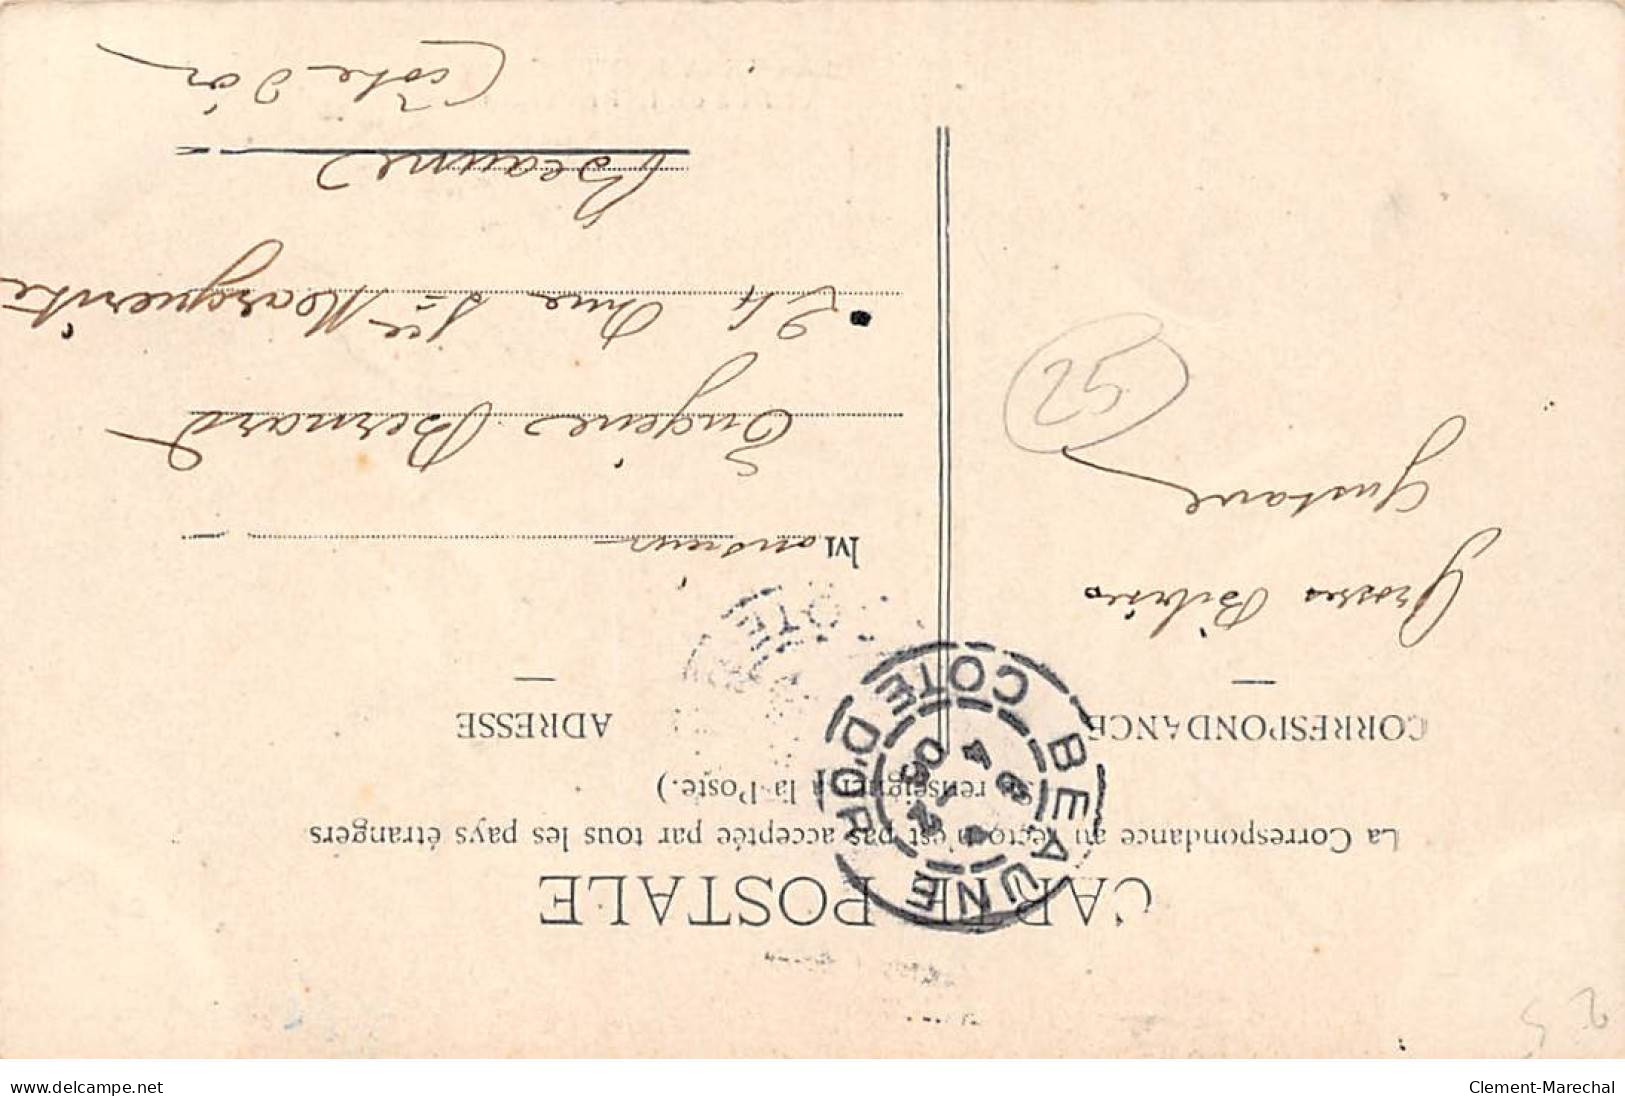 CARTE POSTALE
La Correspondance au recto n'est pas acceptée par tous les pays étrangers
renseigner à la Poste.)
CORRESPONDANCE
ADRESSE
Grosses Bibises
Gustave
52
Monsieur
Eugène Bernard
24 Rue Ste Marguerite
Beaune
(Côte d'or
BEAUNE
COTE D'OR
COTE
2 5
www.delcampe.net
Clement-Marechal